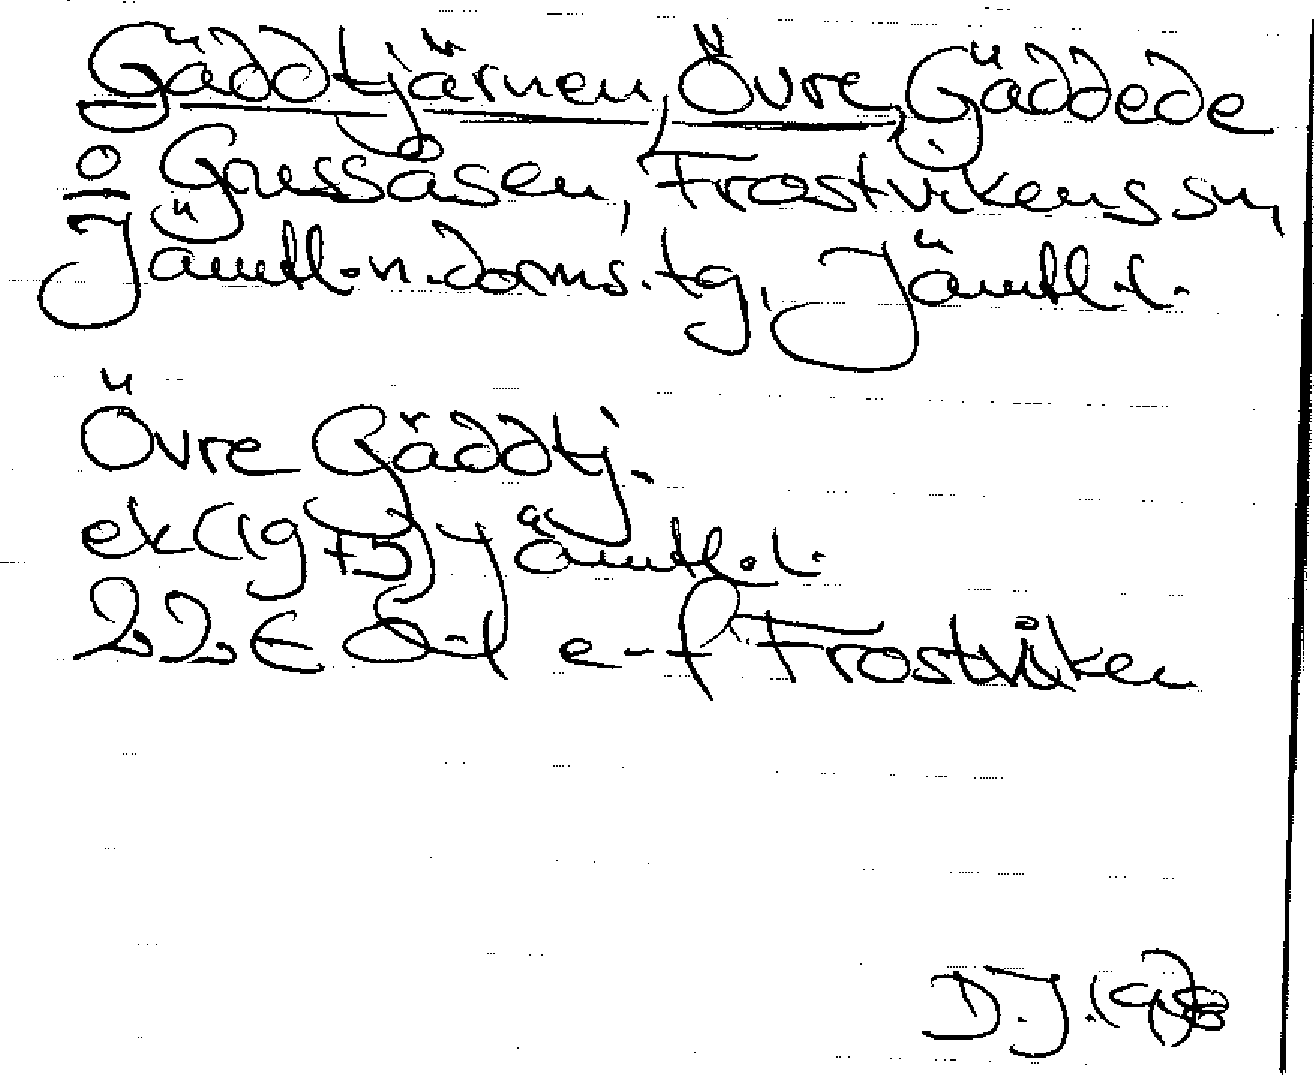 Gäddtjärnen, Övre, Gäddede
o Grussåsen, Frostvikens sn,
Jämtl. n. doms. tg, Jämtl. l.
Övre Gäddtj.
ek (lg F5) Jämtl. l.
22E e-f Frostviken
D.J.